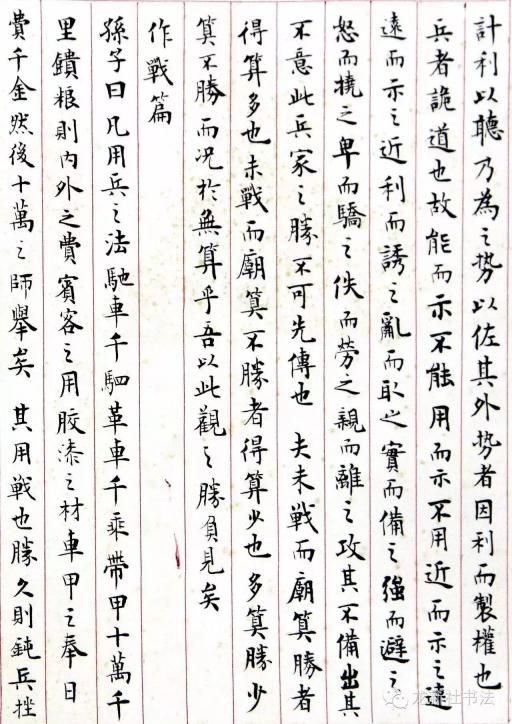 計利以聽乃為之势以佐其外势者因利而製權也
兵者詭道也故能而示不能用而示不用近而示之遠
遠而示之近利而誘之亂而取之實而備之強而避之
怒而撓之卑而驕之佚而勞之親而離之攻其不備出其
不意此兵家之勝不可先傳也 夫未戰而廟算勝者
得算多也未戰而廟算不勝者得算少也多算勝少
算不勝而况於無算乎吾以此觀之勝負見矣
作戰篇
孫子曰凡用兵之法馳車千駟革車千乘帶甲十萬千
里饋粮則内外之費賓客之用膠漆之材車甲之奉日
費千金然後十萬之師舉矣 其用戰也勝久則鈍兵挫